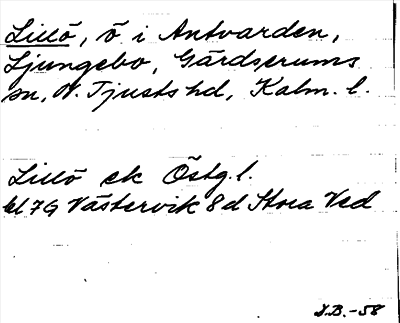 Lillö, ö i Antvarden,
Ljungebo, Gärdserums
sn, N. Tjusts hd, Kalm. l.
Lillö ek Östg. l.
bl 7G Västervik 8d Stora Ved
D.B. -58